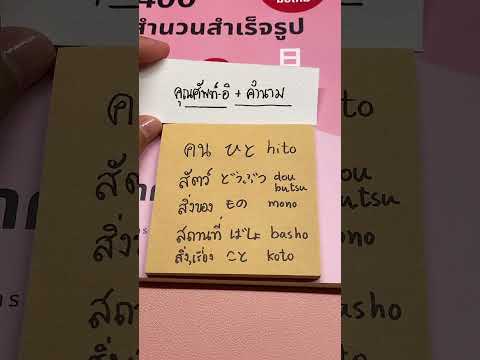 400
สำนวนสำเร็จรูป
日
คุณศัพท์-อิ + คำนาม
คน ひと hito
สัตว์ どうぶつ dou butsu
สิ่งของ もの mono
สถานที่ ばしょ basho
สิ่ง, เรื่อง こと koto